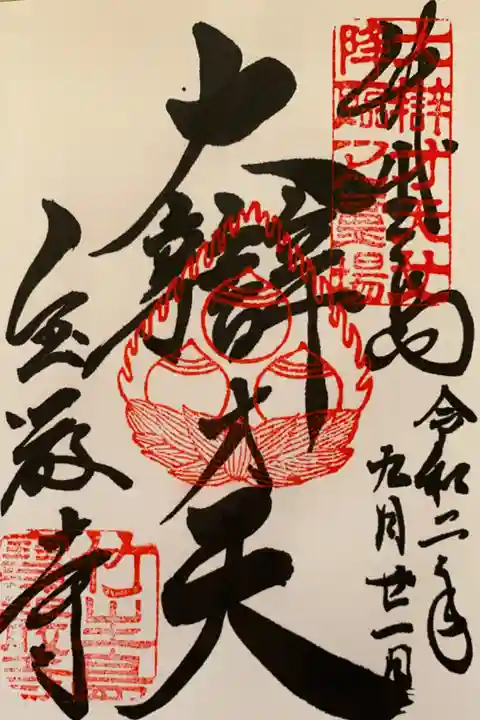 大辯才天女
降臨之靈場
令和二年
九月廿一日
大辯才天
宝厳寺
竹生島